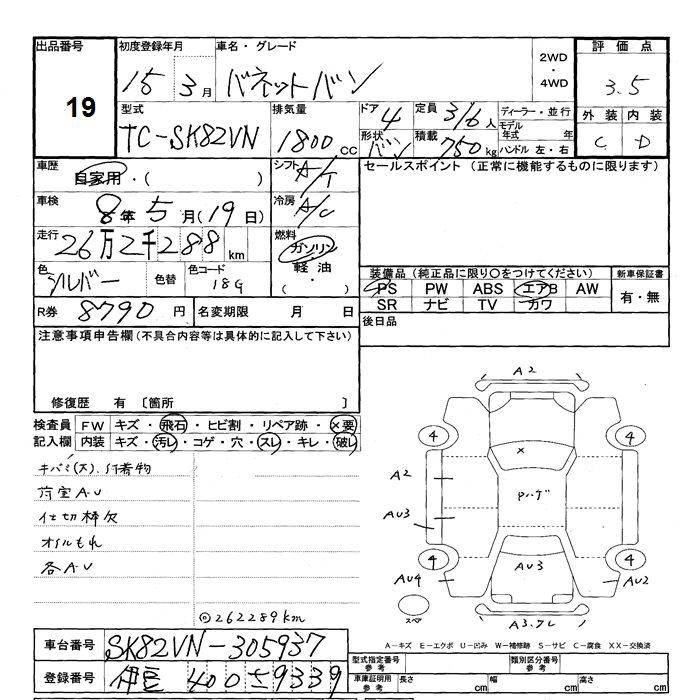 出品番号
19
初度登録年月
15 3月
車名・グレード
バネットバン
2WD
・
4WD
評価点
3.5
外装 内装
C D
型式
TC-SK82VN
排気量
1800 cc
ドア
4
形状
バン
定員 3/6人
積載 750kg
ディーラー・並行
モデル年式 年
ハンドル 左・右
車歴
自家用・( )
シフト
A/T
車検
8年5月(19日)
冷房
A/C
走行
26万2千288km
燃料
ガソリン
軽油
( ・ )
色
シルバー
色替
色コード
18G
R券 8790円
名変期限 月 日
セールスポイント (正常に機能するものに限ります)
装備品 (純正品に限り○をつけてください)
PS PW ABS エアB AW
SR ナビ TV カワ
新車保証書
有・無
後日品
注意事項申告欄(不具合内容等は具体的に記入して下さい)
修復歴 有 〔箇所 〕
検査員
記入欄
FW キズ・飛石・ヒビ割・リペア跡・×要
内装 キズ・汚レ・コゲ・穴・スレ・キレ・破レ
キバミ(大).付着物
荷室AU
仕切棒欠
オイルもれ
各AU
◎262289km
A2
4
4
A2
×
Pハゲ
AU3
4
4
AU4
AU3
AU2
スペ
A3.ワレ
A-キズ E-エクボ U-凹み W-補修跡 S-サビ C-腐食 XX-交換済
車台番号 SK82VN-305937
登録番号 伊豆 400 さ9339
型式指定番号
参考
類別区分番号
参考
車庫証明用
参考
長さ cm
幅 cm
高さ cm